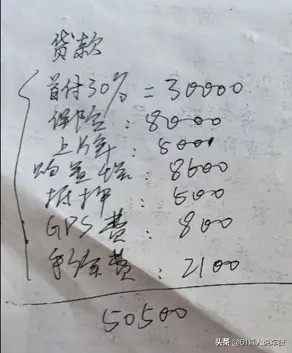 贷款
首付30% = 30000
保险: 8000
上牌: 500
购置税: 8600
抵押: 500
GPS费: 800
手续费: 2100
50500
头条 @61真人说车